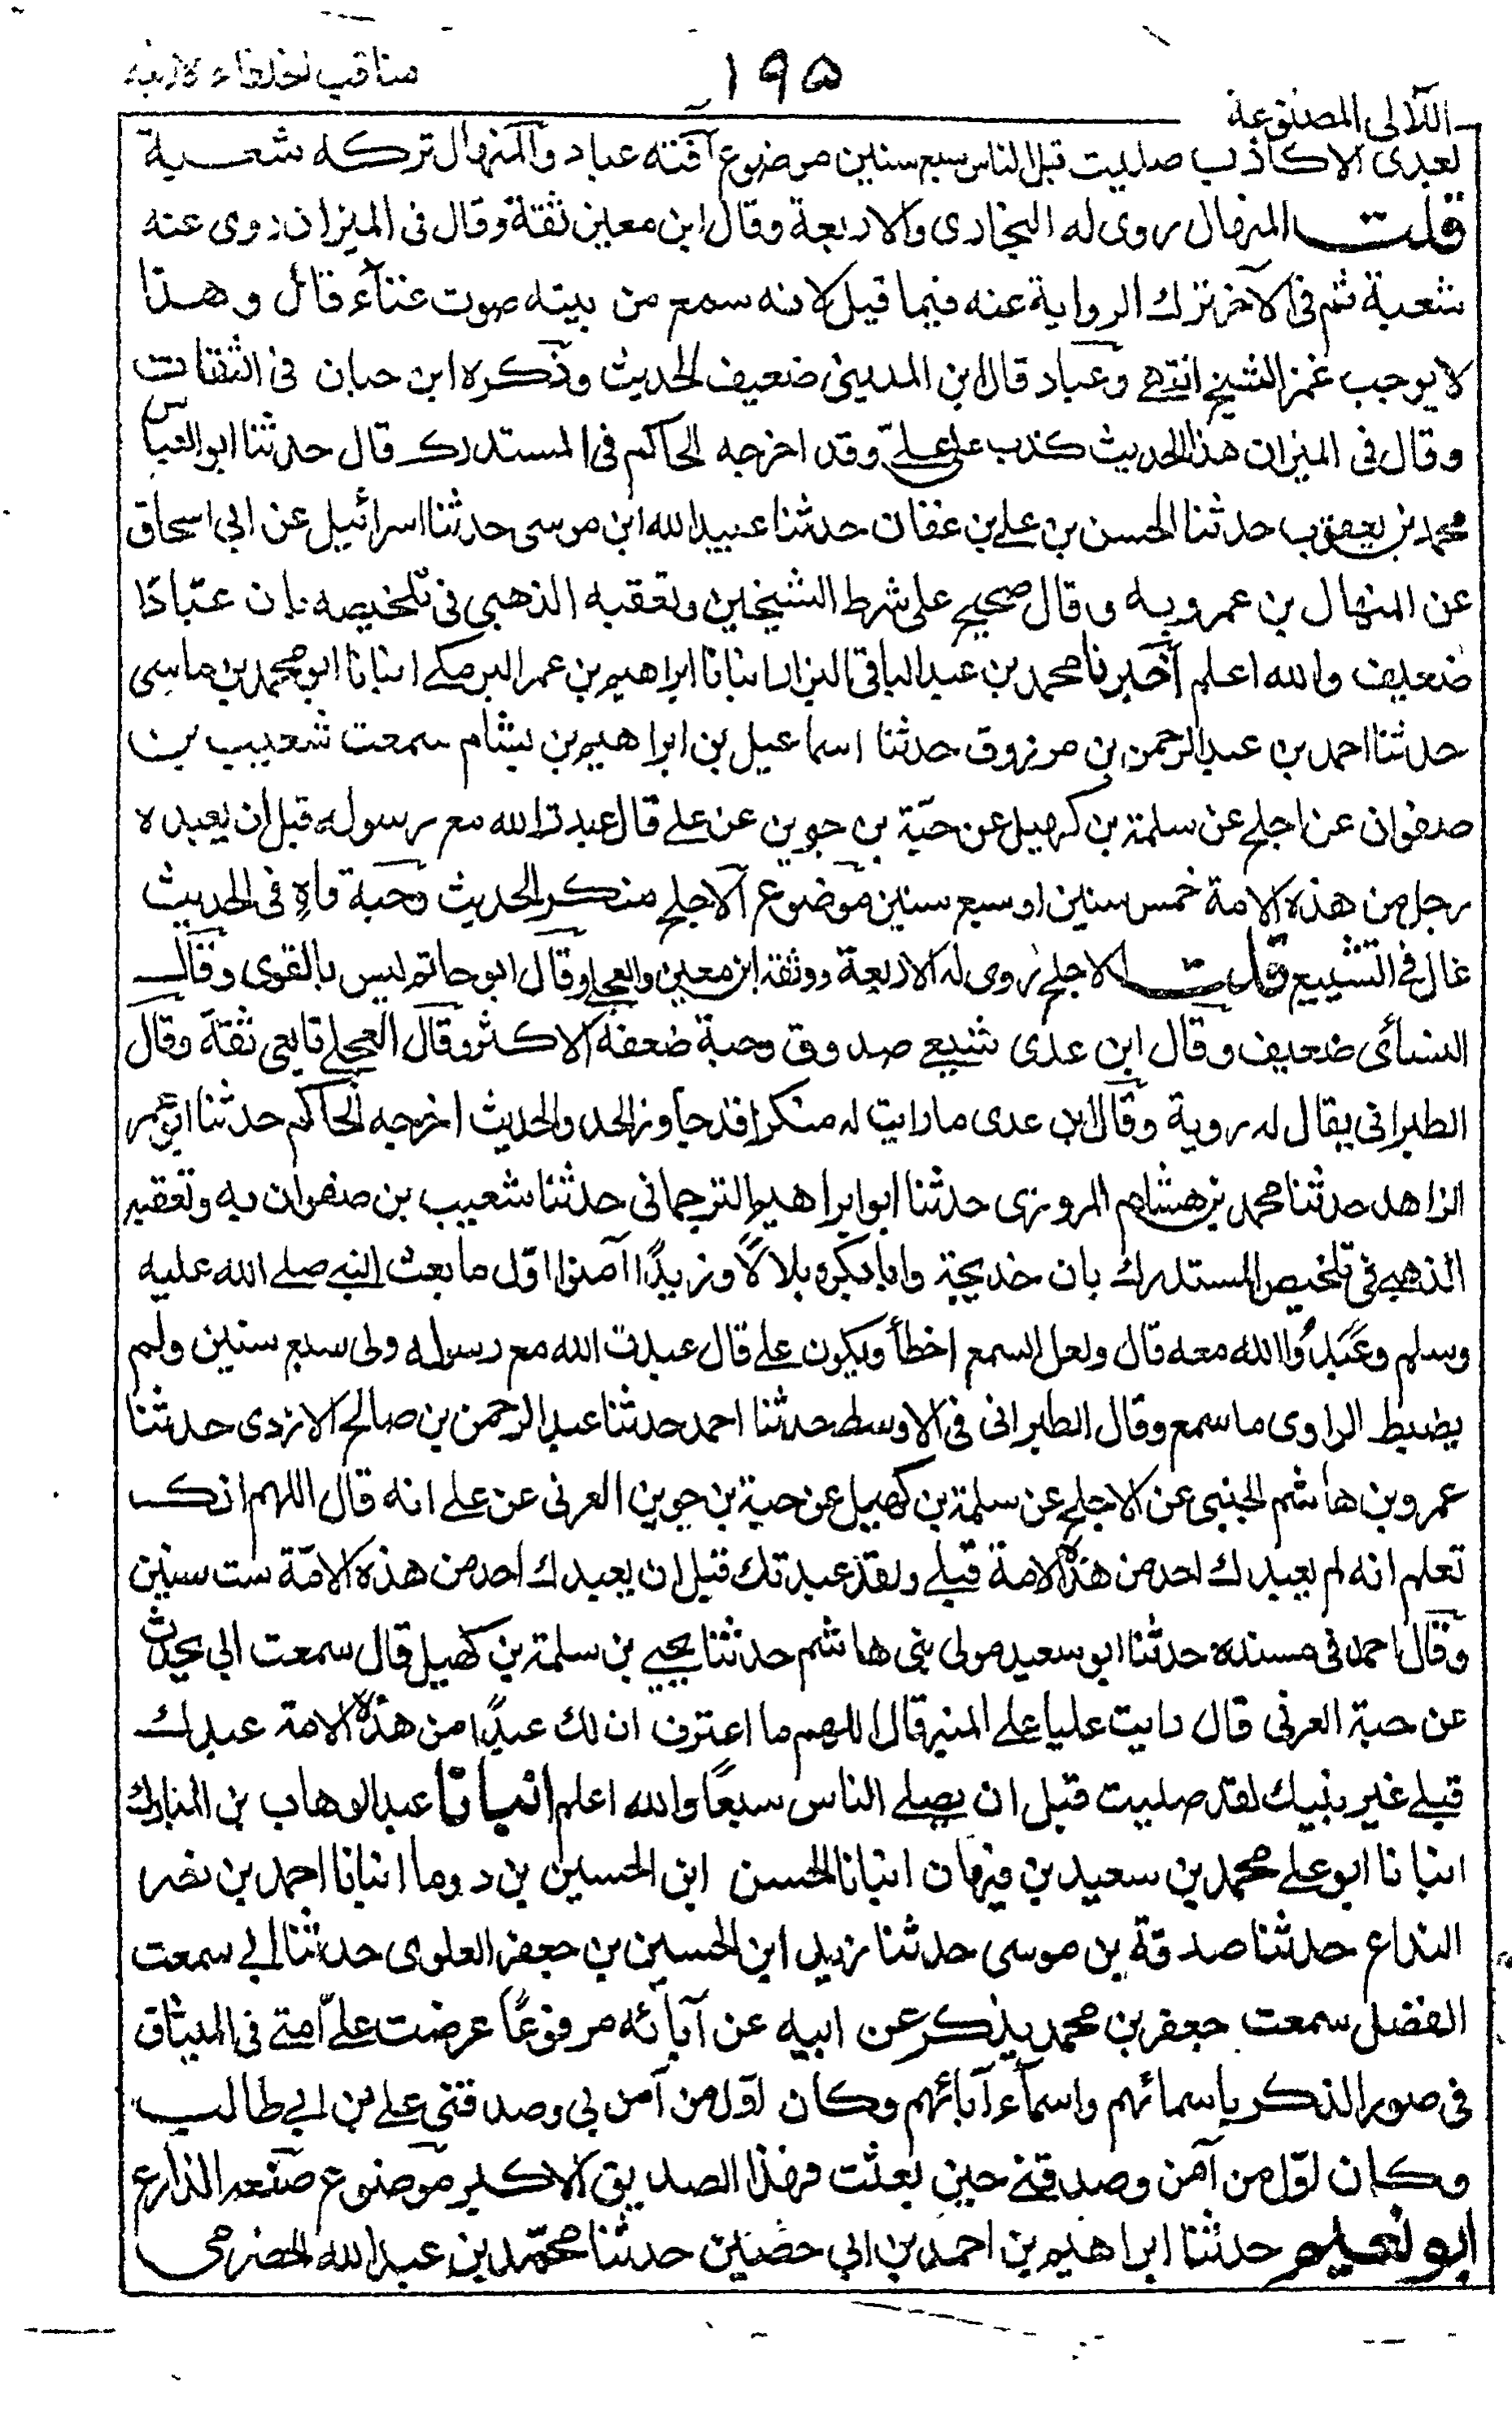 مناقب الخلفاء الاربعة
١٩٥
اللآلى المصنوعة
بعدى الا كاذب صليت قبل الناس سبع سنين موضوع آفته عباد والمنهال تركه شعبة
قلت المنهال روى له البخارى والاربعة وقال ابن معين ثقة وقال فى الميزان روى عنه
شعبة ثم فى الآخر ترك الرواية عنه فيما قيل لانه سمع من بيته صوت غناء قال وهذا
لا يوجب غمز الشيخ انتهى وعباد قال ابن المدينى ضعيف الحديث وذكره ابن حبان فى الثقات
وقال فى الميزان هذا الحديث كذب على على وقد اخرجه الحاكم فى المستدرك قال حدثنا ابو العباس
محمد بن يعقوب حدثنا الحسن بن على بن عفان حدثنا عبيد الله ابن موسى حدثنا اسرائيل عن ابى اسحاق
عن المنهال بن عمرو به وقال صحيح على شرط الشيخين وتعقبه الذهبى فى تلخيصه بان عبّادًا
ضعيف والله اعلم اخبرنا محمد بن عبد الباقى البزار انبانا ابراهيم بن عمر البرمكى انبانا ابو محمد بن ماسى
حدثنا احمد بن عبد الرحمن بن مرزوق حدثنا اسماعيل بن ابراهيم بن بشام سمعت شعيب بن
صفوان عن اجلح عن سلمة بن كهيل عن حبّة بن جوين عن على قال عبدت الله مع رسوله قبل ان يعبده
رجل من هذه الامة خمس سنين او سبع سنين موضوع الاجلح منكر الحديث وحبة واهٍ فى الحديث
غال فى التشييع قلت الاجلح روى له الاربعة ووثقه ابن معين والعجلى وقال ابو حاتم ليس بالقوى وقال
النسائى ضعيف وقال ابن عدى شيعى صدوق وحبة ضعفه الاكثر وقال العجلى تابعى ثقة وقال
الطبرانى يقال له روية وقال ابن عدى ما رايت له منكرا قد جاوز الحد والحديث اخرجه الحاكم حدثنا ابو عمر
الزاهد حدثنا محمد بن هشام المروزى حدثنا ابو ابراهيم الترجمانى حدثنا شعيب بن صفوان به وتعقبه
الذهبى فى تلخيص المستدرك بان خديجة وابا بكر وبلالًا وزيدًا آمنوا اوّل ما بعث النبى صلى الله عليه
وسلم وعَبَدُوا الله معه قال ولعل السمع اخطأ ويكون على قال عبدت الله مع رسوله ولى سبع سنين ولم
يضبط الراوى ما سمع وقال الطبرانى فى الاوسط حدثنا احمد حدثنا عبد الرحمن بن صالح الازدى حدثنا
عمرو بن هاشم الجنبى عن الاجلح عن سلمة بن كهيل عن حبة بن جوين العرنى عن على انه قال اللهم انك
تعلم انه لم يعبدك احد من هذه الامة قبلى ولقد عبدتك قبل ان يعبدك احد من هذه الامّة ست سنين
وقال احمد فى مسنده حدثنا ابو سعيد مولى بنى هاشم حدثنا يحيى بن سلمة بن كهيل قال سمعت ابى يحدث
عن حبة العرنى قال رايت عليا على المنبر قال اللهم ما اعترف ان لك عبدًا من هذه الامة عبدك
قبلى غير نبيك لقد صليت قبل ان يصلى الناس سبعًا والله اعلم انبانا عبد الوهاب بن المبارك
انبانا ابو على محمد بن سعيد بن نبهان انبانا الحسن ابن الحسين بن دوما انبانا احمد بن نصر
الذراع حدثنا صدقة بن موسى حدثنا زيد ابن الحسين بن جعفر العلوى حدثنا ابى سمعت
الفضل سمعت جعفر بن محمد يذكر عن ابيه عن آبائه مرفوعًا عرضت علىّ امتى فى الميثاق
فى صور الذكر باسمائهم واسماء آبائهم وكان اوّل من آمن بى وصدقنى على بن ابى طالب
وكان اوّل من آمن وصدقنى حين بعثت فهذا الصديق الاكبر موضوع صنعه الذارع
ابو نعيم حدثنا ابراهيم بن احمد بن ابى حضين حدثنا محمّد بن عبد الله الحضرمى